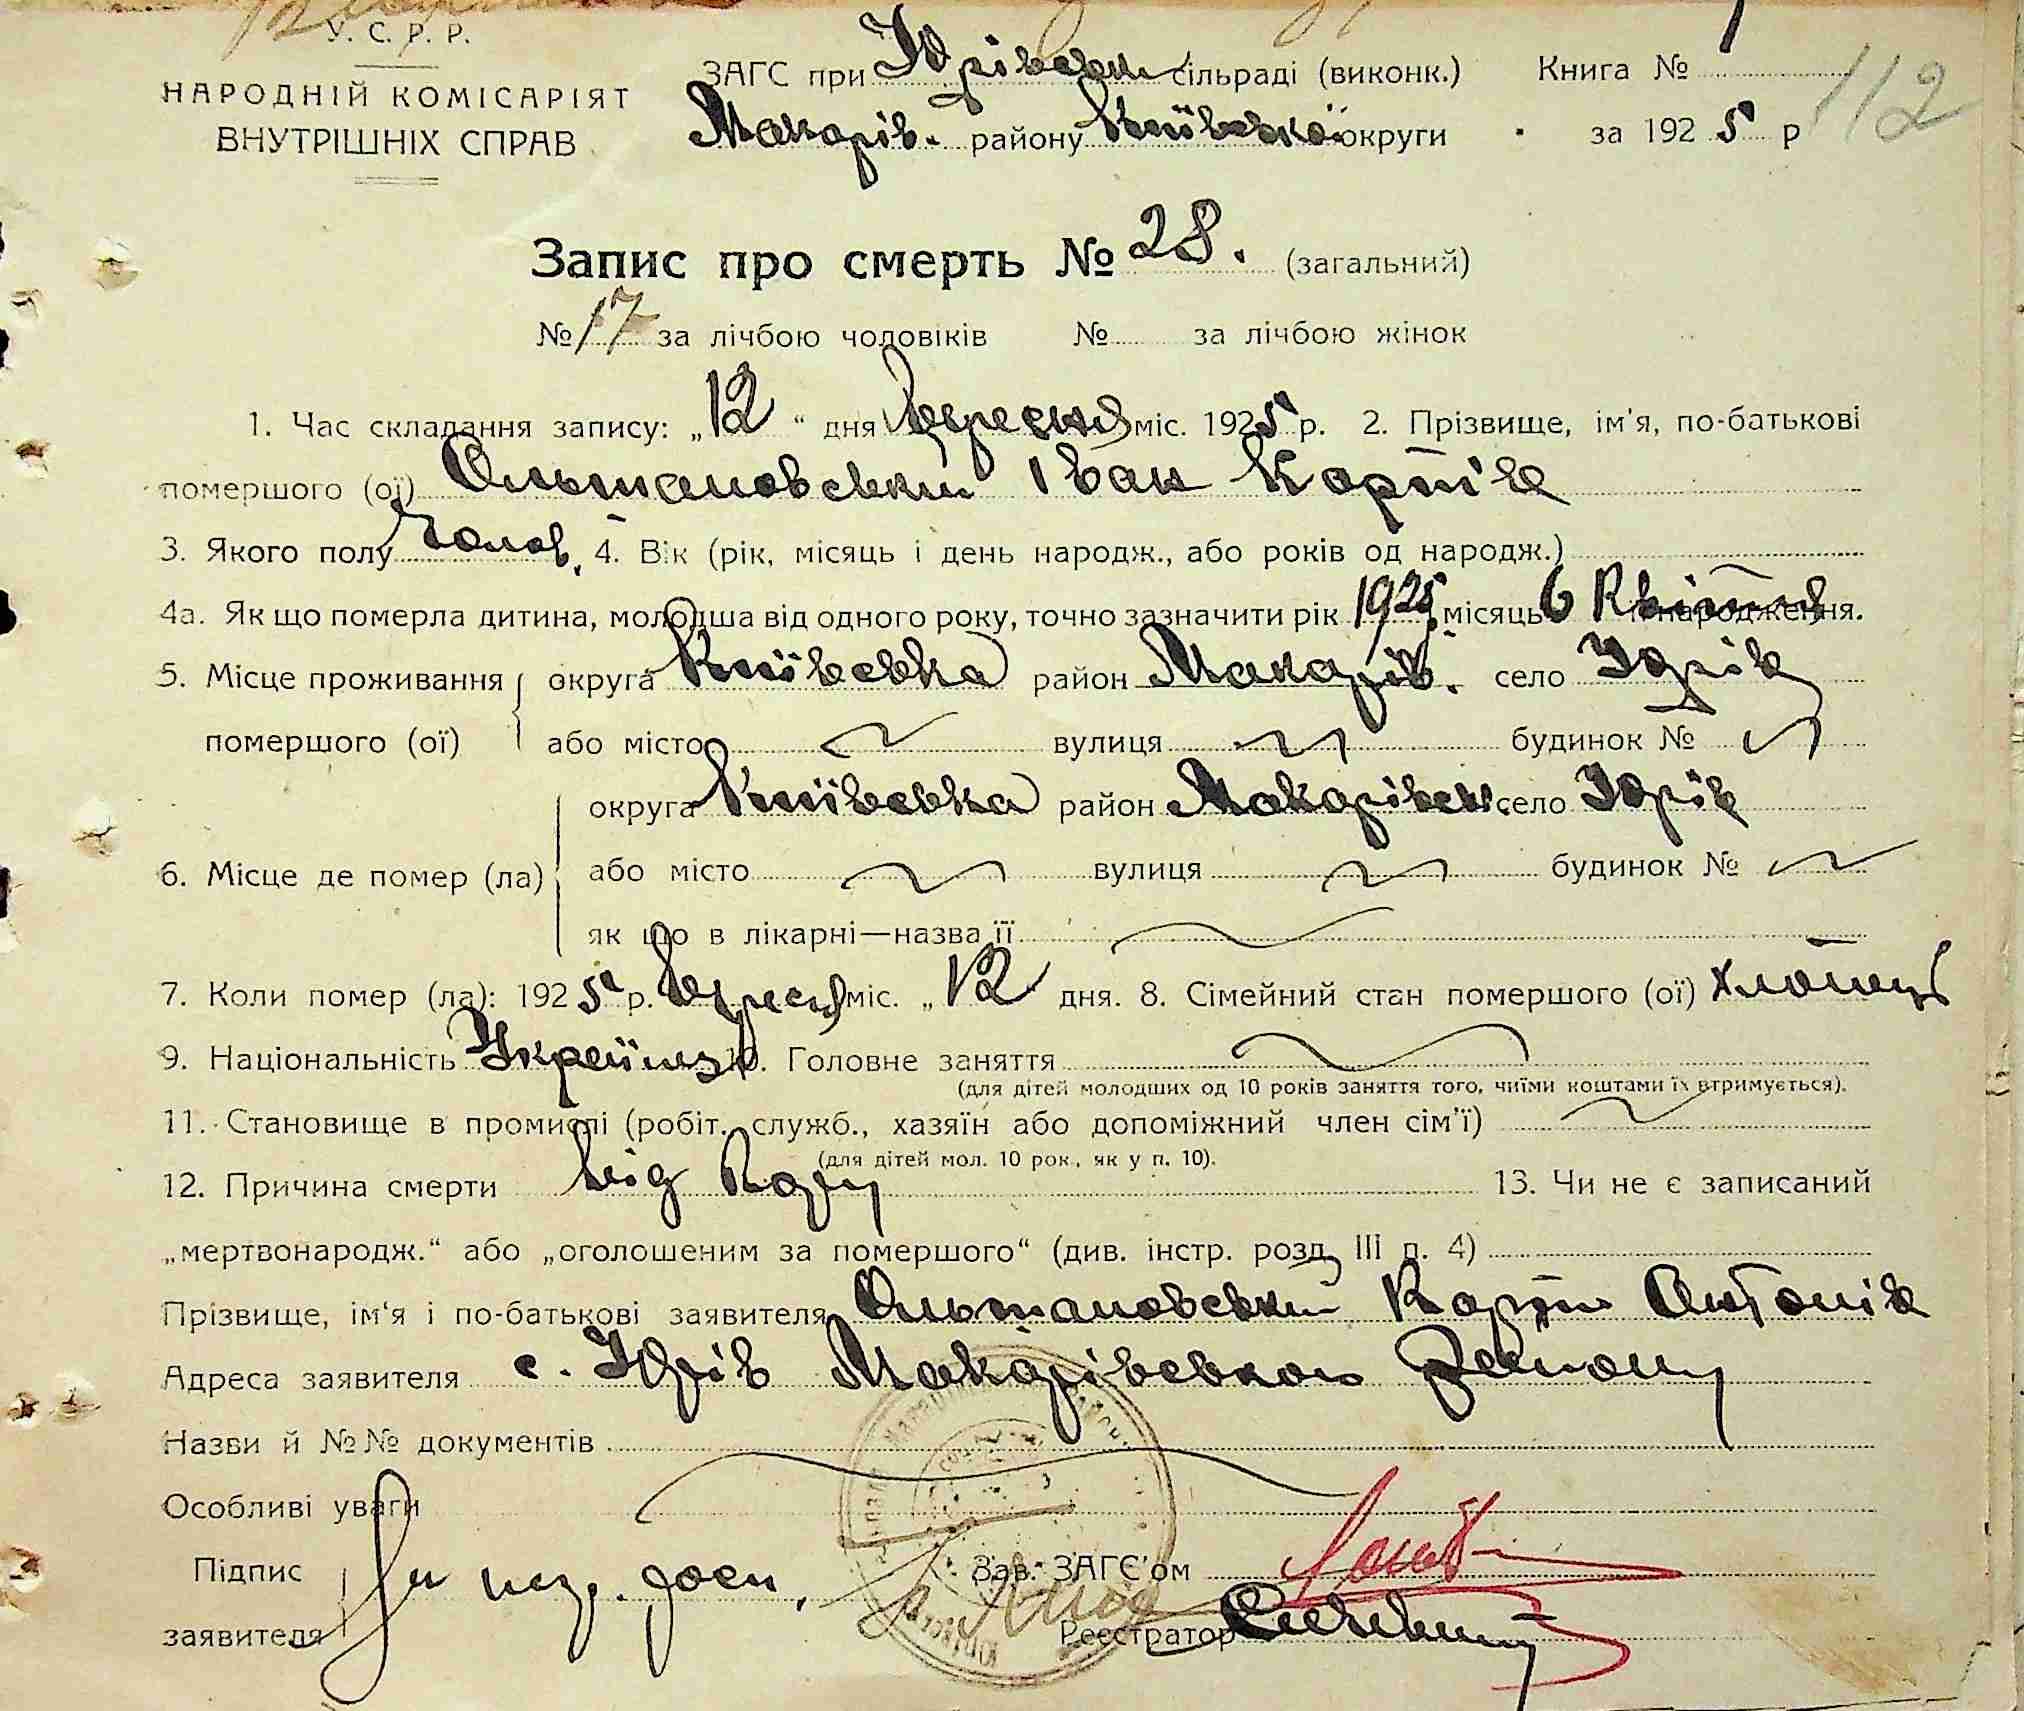 У. С. Р. Р.
НАРОДНІЙ КОМІСАРІЯТ
ВНУТРІШНІХ СПРАВ
ЗАГС при Юрівськ сільраді (виконк.) Книга №
Макарів. району Київської округи за 1925 р
112
Запис про смерть № 28. (загальний)
№ 17 за лічбою чоловіків № за лічбою жінок
1. Час складання запису: „12“ дня вересня міс. 1925 р. 2. Прізвище, ім'я, по-батькові
помершого (ої) Ольшановський Іван Карпів
3. Якого полу Чолов. 4. Вік (рік, місяць і день народж., або років од народж.)
4а. Як що померла дитина, молодша від одного року, точно зазначити рік 1925 місяць 6 Квітня її народження.
5. Місце проживання округа Київська район Макарів. село Юрів
помершого (ої) або місто вулиця будинок №
округа Київська район Макарівськ. село Юрів
6. Місце де помер (ла) або місто вулиця будинок №
як що в лікарні—назва її
7. Коли помер (ла): 1925 р. вересня міс. „12 дня. 8. Сімейний стан помершого (ої) хлопець
9. Національність Україн. 10. Головне заняття
(для дітей молодших од 10 років заняття того, чиїми коштами їх втримується).
11. Становище в промислі (робіт. служб., хазяїн або допоміжний член сім'ї)
(для дітей мол. 10 рок., як у п. 10).
12. Причина смерти від Кору 13. Чи не є записаний
„мертвонародж.“ або „оголошеним за помершого“ (див. інстр. розд. III п. 4)
Прізвище, ім'я і по-батькові заявителя Ольшановський Карпо Антонів
Адреса заявителя с. Юрів Макарівського Району
Назви й №№ документів
Особливі уваги
Підпис
заявителя
Зав. ЗАГС'ом
Реєстратор